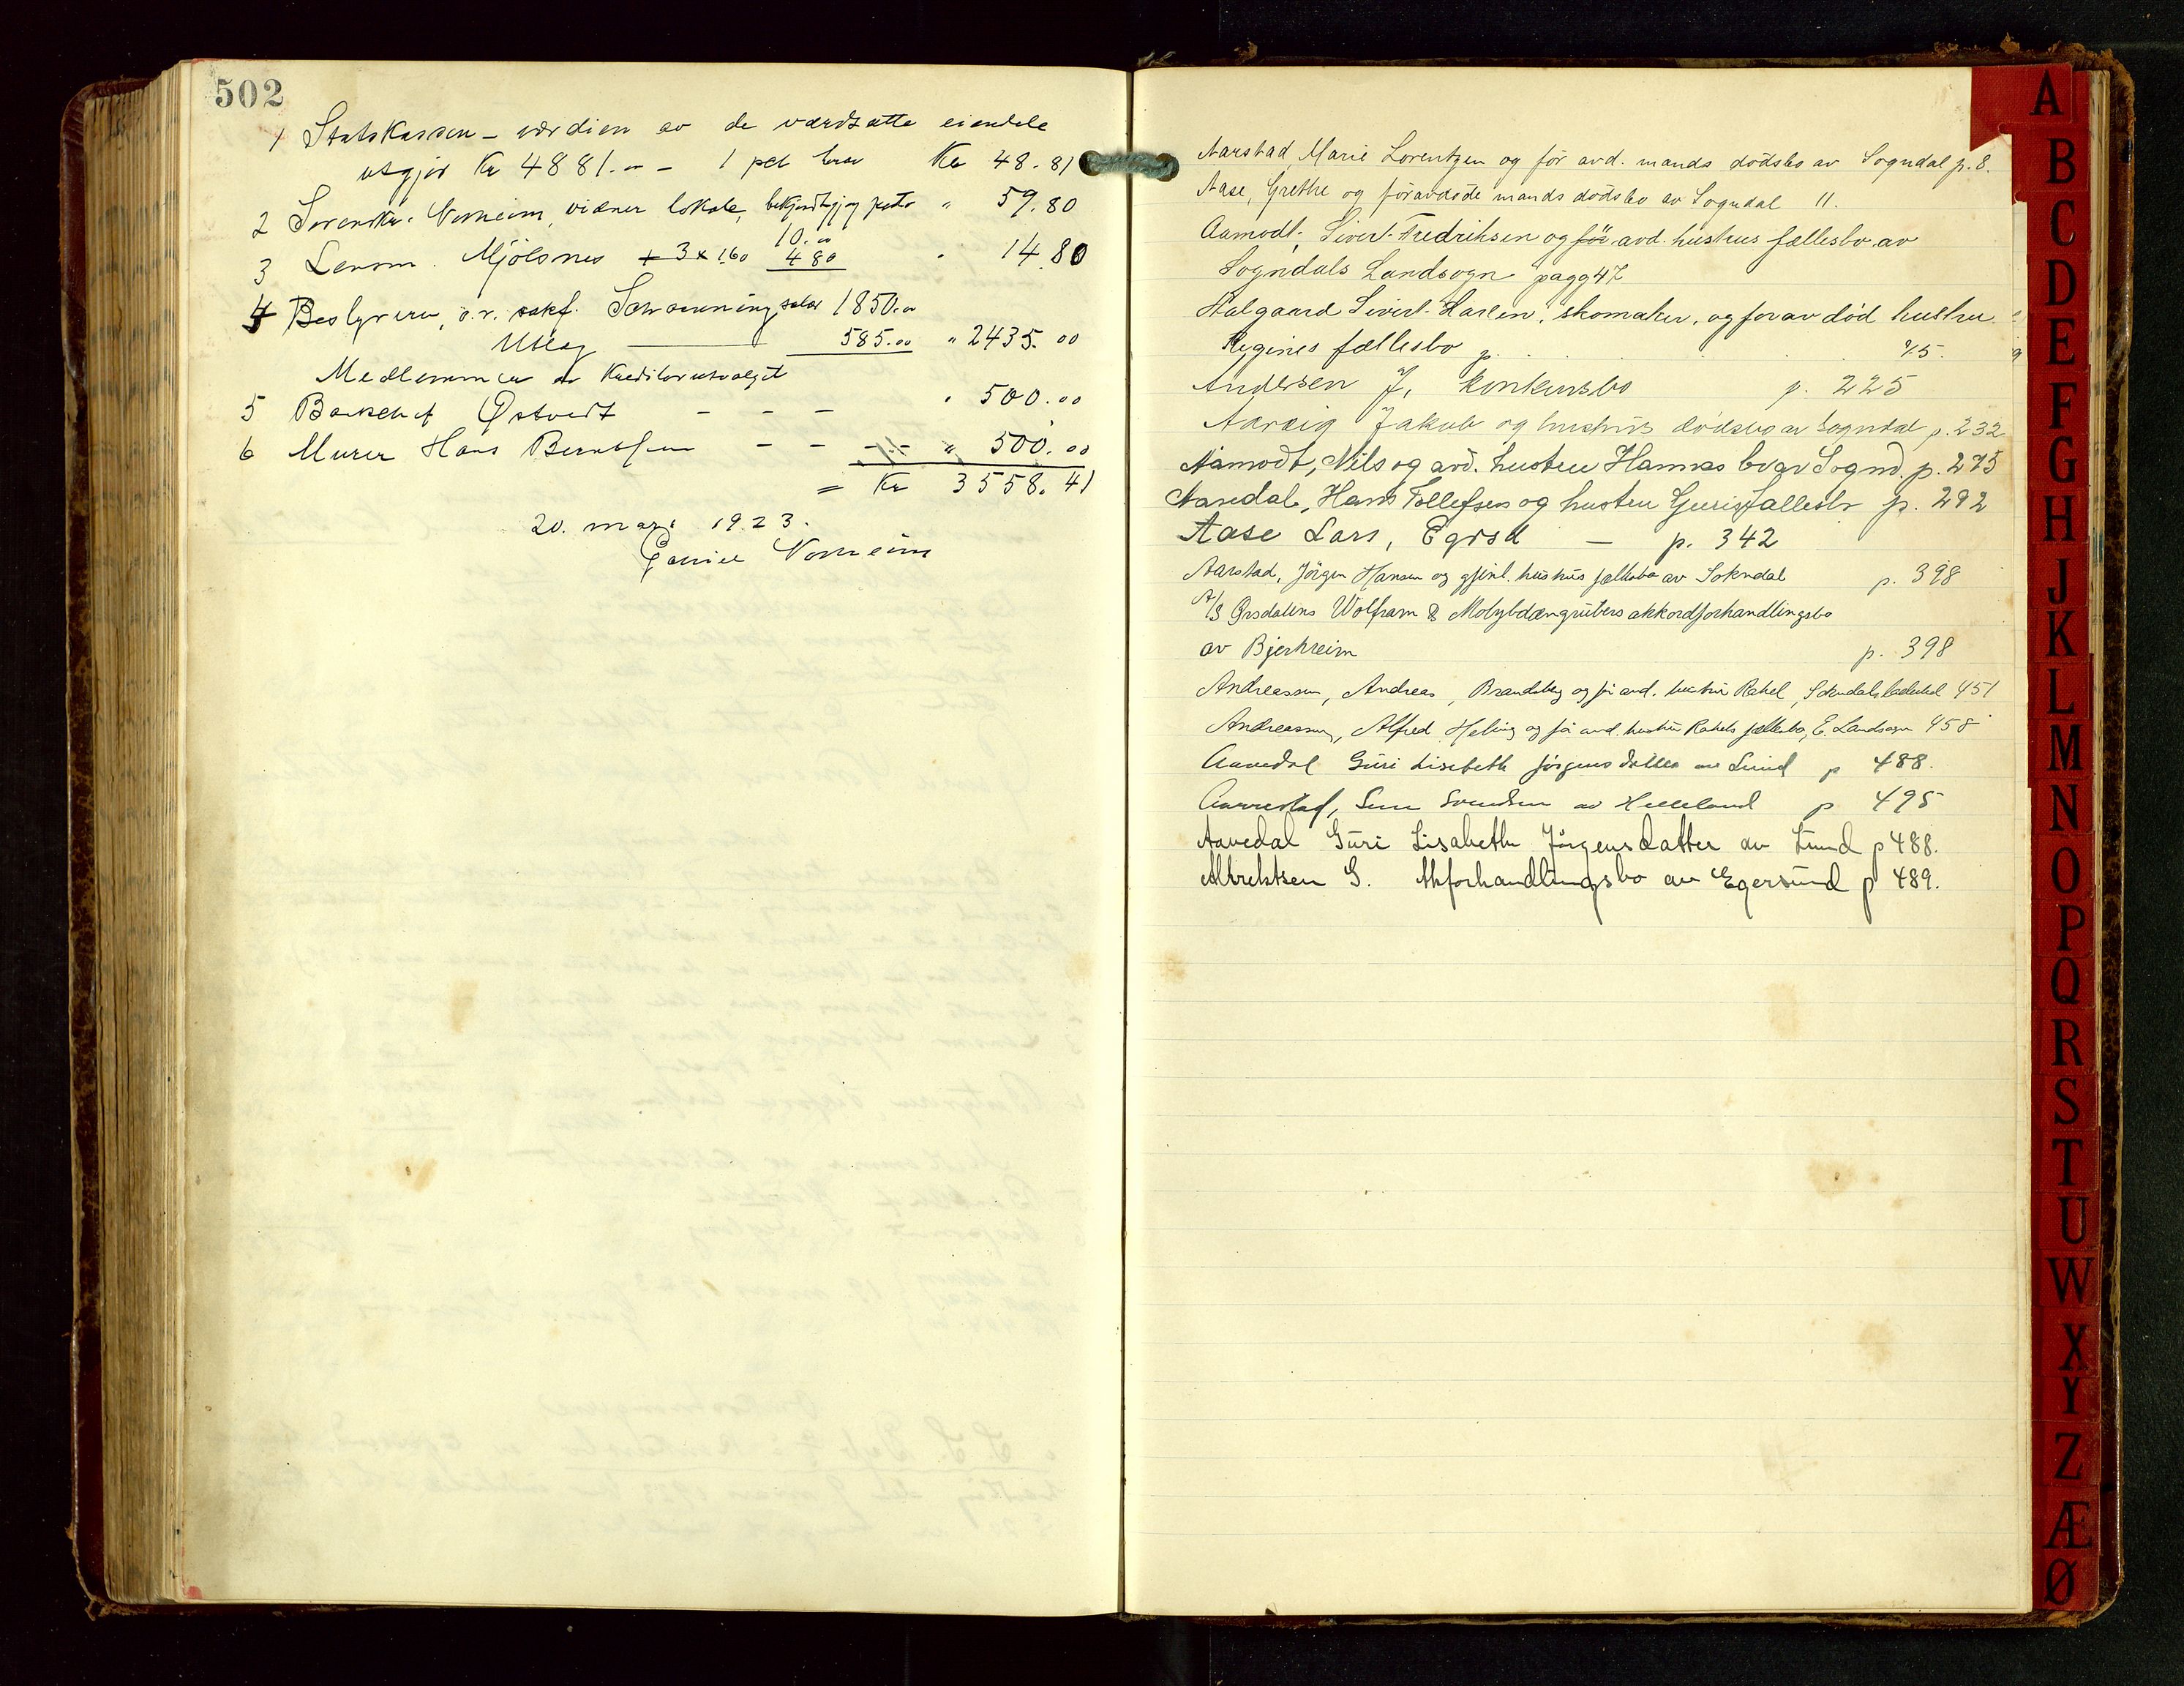 502
1 Statskassen - værdien av de værdsatte eiendele
utgjør Kr 4881.00 - 1 pct herav Kr 48.81
2 Sorenskr. Norheim, vidner lokale, bekjendtgj og porto " 59.80
10.00
3 Lensm. Mjölsnes + 3 x 1.60 4 80 " 14.80
4 Bestyreren, o.r. sakf. Schwenning salær 1850.00
Utlæg 585.00 " 2435.00
Medlemmer av Kreditorutvalget
5 Banksjef Østvedt - - - " 500.00
6 Murer Hans Berntsen - - - " 500.00
= Kr 3558.41
20. mars 1923.
Norheim
Aarstad, Marie Lorentzen og för avd. mands dödsbo av Sogndal p. 8.
Aase, Grethe og föravdöde mands dödsbo av Sogndal 11.
Aamodt, Sivert Fredriksen og før avd. hustrus fællesbo av
Sogndals Landsogn pagg 47
Aalgaard Sivert Larsen, skomaker, og forav död hustru
Regines fællesbo p. 75.
Andersen J, konkursbo p. 225
Aarvig Jakob og hustrus dödsbo av Sogndal p. 232
Aamodt, Nils og avd. hustru Hannas bo av Sognd. p. 275
Aavedal, Hans Tollefsen og hustru Guris fællesbo p. 292
Aase Lars, Egrsd - p. 342
Aarstad, Jörgen Hansen og gjenl. hustrus fællesbo av Sokndal p. 398
A/S Ørsdalens Wolfram & Molybdængrubers akkordforhandlingsbo
av Bjerkreim p. 398
Andreassen, Andreas, Brandsberg og før avd. hustru Rakel, Sokndals ladested 451
Andreassen, Alfred Heling og før avd. hustru Rakels fællesbo, E. Landsogn 458
Aavedal Guri Lisebeth Jörgensdatter av Lund p 488.
Aarrestad, Sven Svendsen av Helleland p 495
Aavedal Guri Lisabeth Jörgensdatter av Lund p 488.
Albrektsen G. Akforhandlingsbo av Egersund p 489.
A
B
C
D
E
F
G
H
J
K
L
M
N
O
P
Q
R
S
T
U
W
X
Y
Z
Æ
Ø